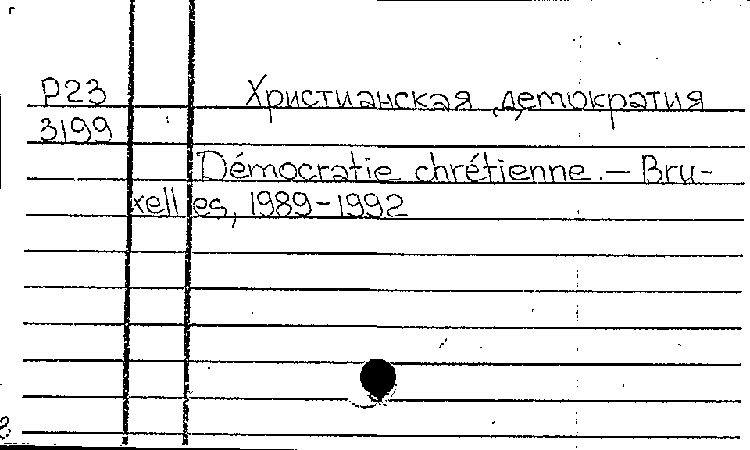 P23 Христианская демократия
3199
Démocratie chrétienne. — Bru-
xelles, 1989-1992